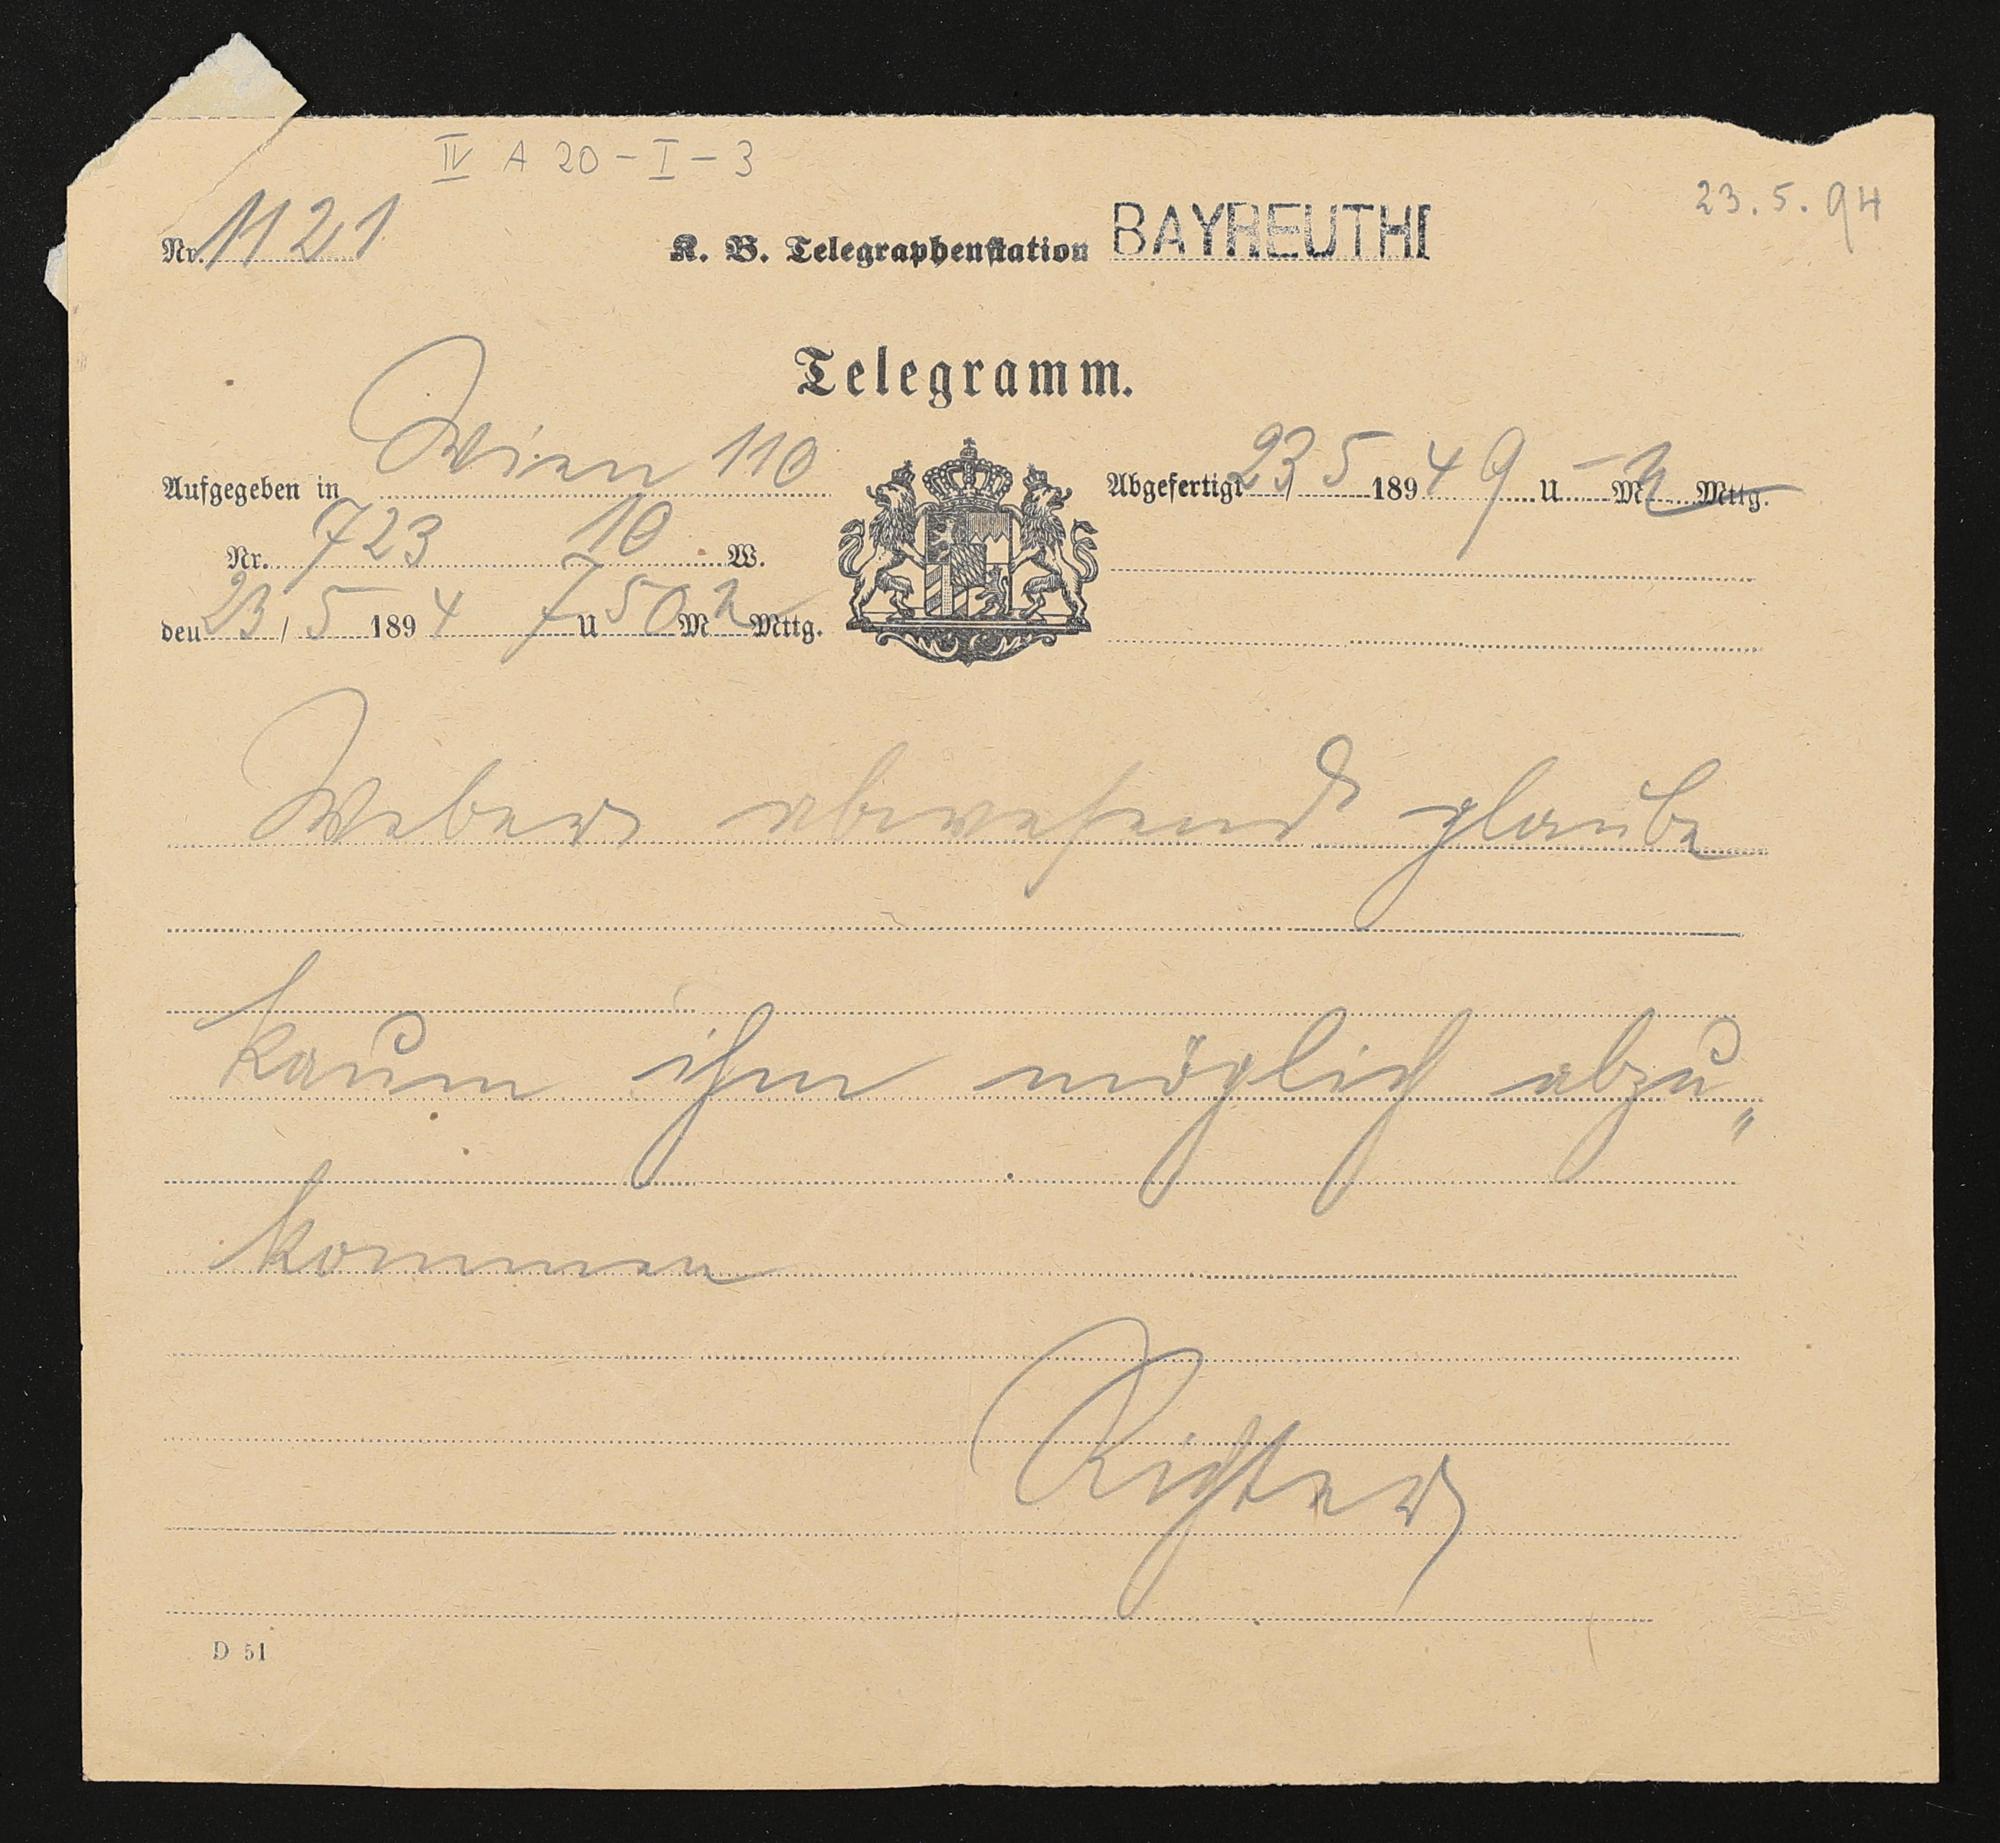 IV A 20 - I - 3
23. 5. 94
Nr. 1121 K. B. Telegraphenstation BAYREUTH
Telegramm.
Aufgegeben in Wien 110
Abgefertigt 23/5 1894 9 U - M N Mttg.
Nr. 723 10 W.
den 23/5 1894 7 U 50 M N Mttg.
Weber abwesend glaube
kaum ihm möglich abzu„
kommen
Richter
D 51